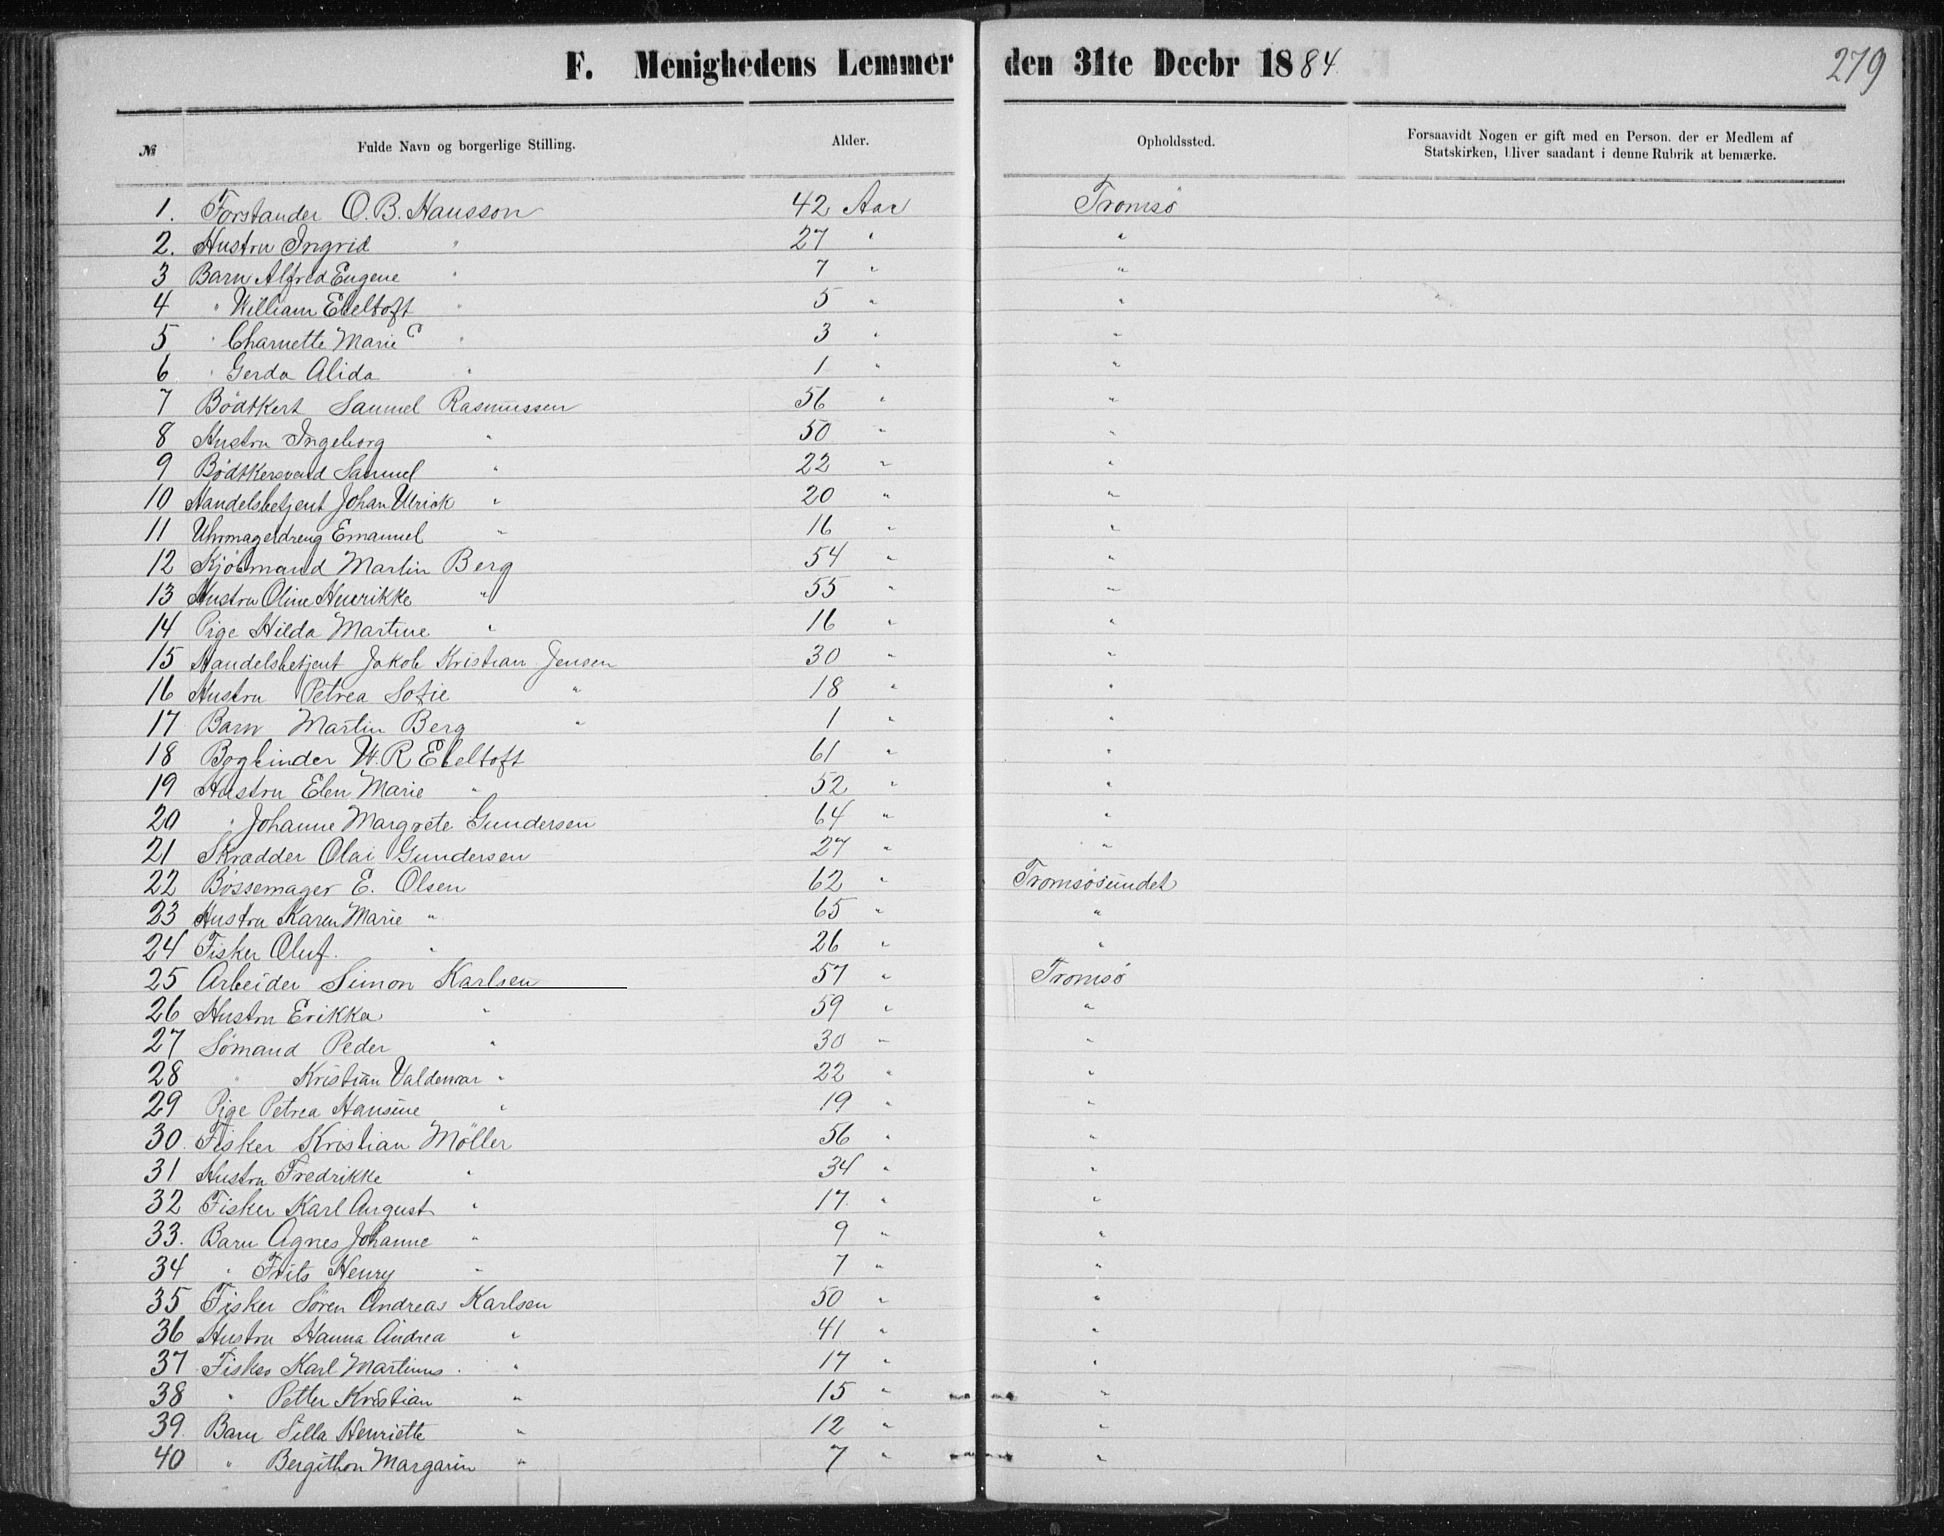 F. Menighedens Lemmer den 31te Decbr 1884. 279
№ Fulde Navn og borgerlige Stilling. Alder. Opholdssted. Forsaavidt Nogen er gift med en Person, der er Medlem af
Statskirken, bliver saadant i denne Rubrik at bemærke.
1. Forstander O. B. Hansson 42 Aar Tromsø
2. Hustru Ingrid " 27 " "
3 Barn Alfred Eugene " 7 " "
4 " William Ebeltoft " 5 " "
5 " Charnette Marie " 3 " "
6 " Gerda Alida " 1 " "
7 Bødtkert Samuel Rasmussen 56 " "
8 Hustru Ingeborg " 50 " "
9 Bødtkersvend Samuel " 22 " "
10 Handelsbetjent Johan Ulrick " 20 " "
11 Uhrmagerdreng Emanuel " 16 " "
12 Kjøbmand Martin Berg 54 " "
13 Hustru Oline Henrikke " 55 " "
14 Pige Hilda Martine " 16 " "
15 Handelsbetjent Jakob Kristian Jensen 30 " "
16 Hustru Petrea Sofie " 18 " "
17 Barn Martin Berg " 1 " "
18 Bogbinder W. R Ebeltoft 61 " "
19 Hustru Elen Marie " 52 " "
20 " Johanne Margrete Gundersen 64 " "
21 Skradder Olai Gundersen 27 " "
22 Bøssemager E. Olsen 62 " Tromsøsundet
23 Hustru Karen Marie " 65 " "
24 Fisker Oluf. " 26 " "
25 Arbeider Simon Karlsen 57 " Tromsø
26 Hustru Erikka " 59 " "
27 Sømand Peder " 30 " "
28 " Kristian Valdemar " 22 " "
29 Pige Petrea Hansine " 19 " "
30. Fisker Kristian Møller 56 " "
31 Hustru Fredrikke " 34 " "
32 Fisker Karl August " 17. " "
33. Barn Agnes Johanne " 9 " "
34 " Frits Henry " 7 " "
35 Fisker Søren Andreas Karlsen 50 " "
36 Hustru Hanna Andrea " 41 " "
37 Fisker Karl Martinus . " 17 " "
38 " Petter Kristian " 15 " "
39. Barn Silla Henriette " 12 " "
40 " Bergithon Margarin " 7 " "